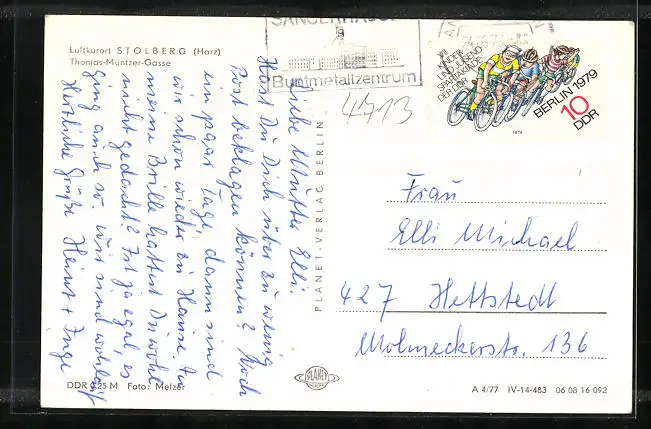 Luftkurort STOLBERG (Harz)
Thomas-Müntzer-Gasse
SANGERHAUSEN
Buntmetallzentrum
4713
VII.
KINDER-
UND JUGEND-
SPARTAKIADE
DER DDR
BERLIN 1979
10
DDR
1979
Liebe Mutter Elli.
Hast Du Dich über zu wenig
Post beklagen können? Noch
ein paar Tage, dann sind
wir schon wieder zu Hause. An
meine Brille hattest Du wohl
nicht gedacht? Ist ja egal, es
ging auch so. Wir sind wohlauf
Herzliche Grüße Heinz + Inge
PLANET-VERLAG BERLIN
Frau
Elli Michael
427 Hettstedt
Molmeckerstr. 136
DDR 0,25 M Foto: Melzer
PLANET
A 4/77 IV-14-483 06 08 16 092